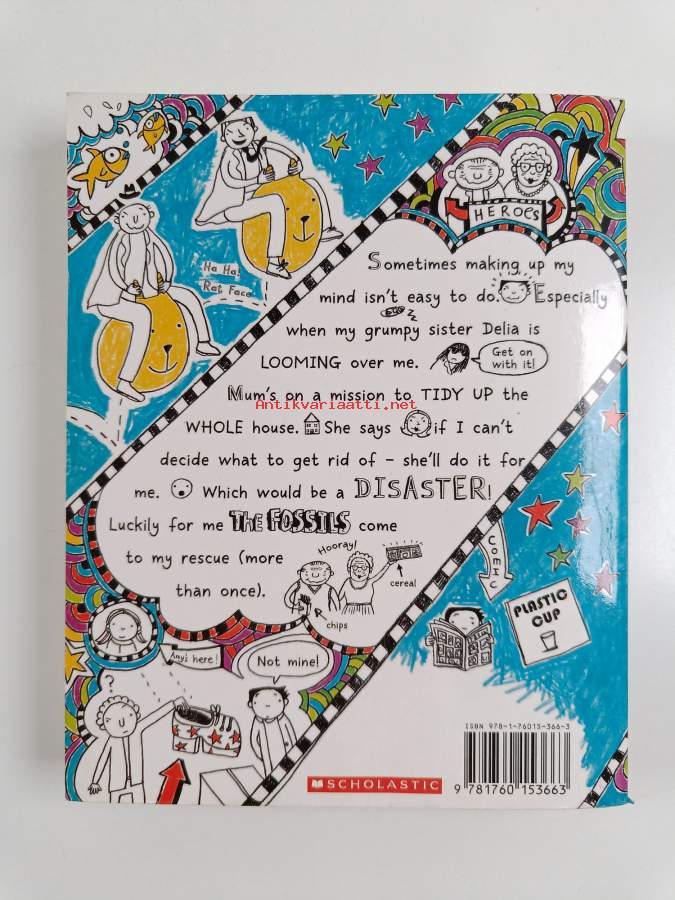 HEROES
Ha Ha!
Rat Face
Sometimes making up my
mind isn't easy to do. Especially
when my grumpy sister Delia is
LOOMING over me.
Get on
with it!
Mum's on a mission to TIDY UP the
Antikvariaatti.net
WHOLE house. She says if I can't
decide what to get rid of – she'll do it for
me. Which would be a DISASTER!
Luckily for me THE FOSSILS come
to my rescue (more
than once).
Hooray!
cereal
chips
COMIC
PLASTIC
CUP
Amy's here!
Not mine!
ISBN 978-1-76015-366-3
9 781760 153663
SCHOLASTIC